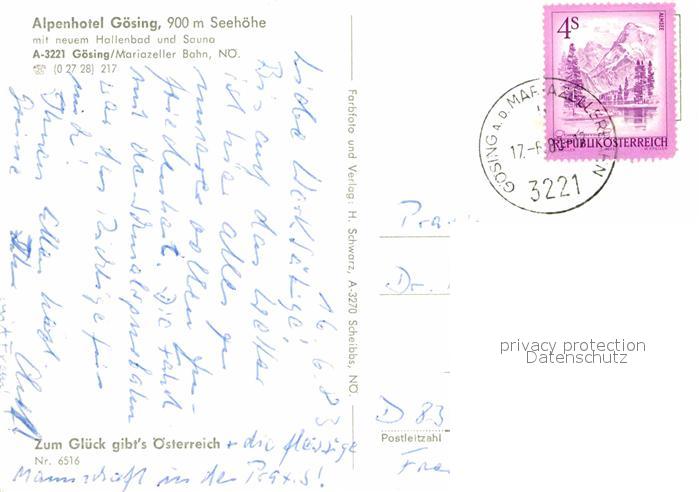 Alpenhotel Gösing, 900 m Seehöhe
mit neuem Hallenbad und Sauna
A-3221 Gösing/Mariazeller Bahn, NÖ.
☏ (0 27 28) 217
16.6.83
Liebe Werktätige!
Bis auf das Wetter
ist hie alles zu
unserer vollen Zu-
friedenheit. Die Fahrt
mit der Schmalspurbahn
war das Richtige für
mich!
Ihnen allen herzl.
Grüsse Ihr
Zum Glück gibt's Österreich + die fleissige
Nr. 6516
Mannschaft in der Praxis!
Farbfoto und Verlag: H. Schwarz, A-3270 Scheibbs, NÖ.
4S
ALMSEE
REPUBLIK ÖSTERREICH
GÖSING A. D. MARIAZELLERBAHN
3221
Dr.
D 83
Postleitzahl
privacy protection
Datenschutz